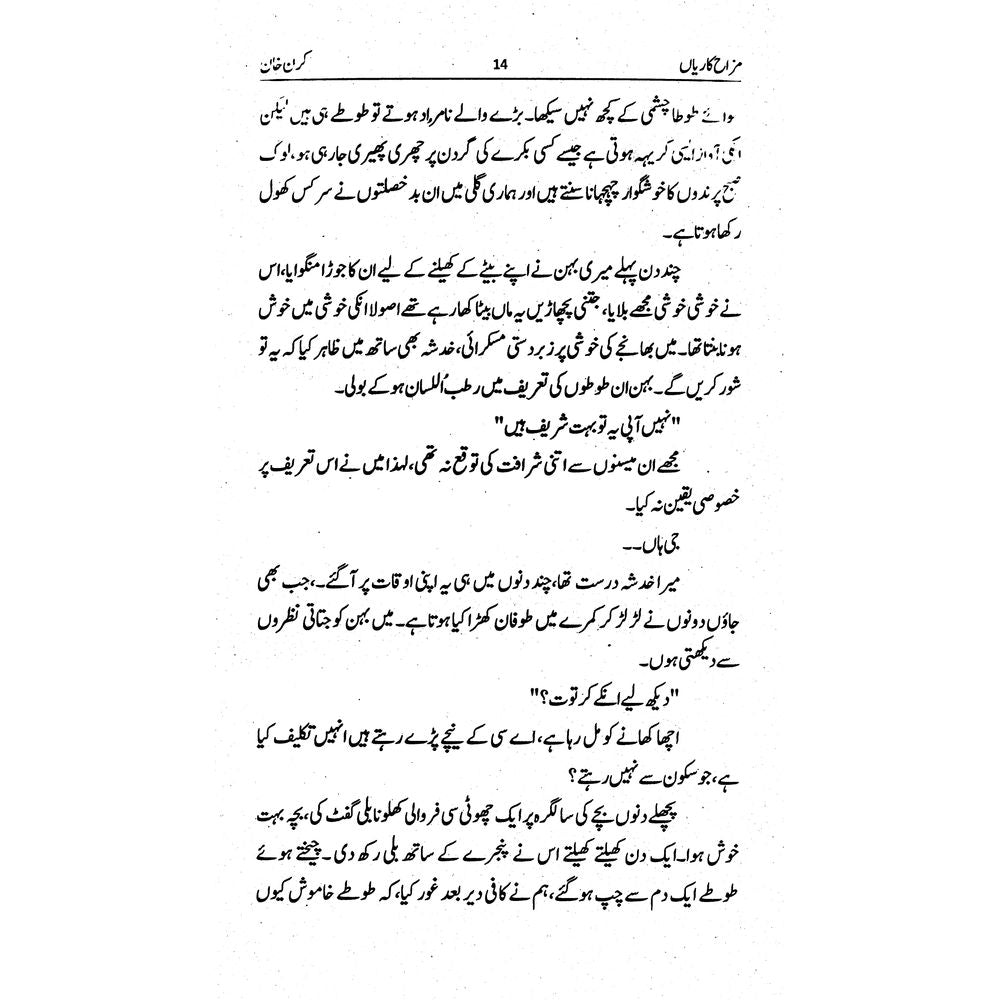 مزاح کاریاں 14 کرن خان
سوائے طوطا چشمی کے کچھ نہیں سیکھا۔ بڑے والے نامراد ہوتے تو طوطے ہی ہیں لیکن
انکی آواز ایسی کریہہ ہوتی ہے جیسے کسی بکرے کی گردن پر چھری پھیری جارہی ہو، لوگ
صبح پرندوں کا خوشگوار چہچہانا سنتے ہیں اور ہماری گلی میں ان بدخصلتوں نے سرکس کھول
رکھا ہوتا ہے۔
چند دن پہلے میری بہن نے اپنے بیٹے کے کھیلنے کے لیے ان کا جوڑا منگوایا، اس
نے خوشی خوشی مجھے بلایا، جتنی پچھاڑیں یہ ماں بیٹا کھا رہے تھے اصولا انکی خوشی میں خوش
ہونا بنتا تھا۔ میں بھانجے کی خوشی پر زبردستی مسکرائی، خدشہ بھی ساتھ میں ظاہر کیا کہ یہ تو
شور کریں گے۔ بہن ان طوطوں کی تعریف میں رطب اُللسان ہو کے بولی۔
"نہیں آپی یہ تو بہت شریف ہیں"
مجھے ان میسنوں سے اتنی شرافت کی توقع نہ تھی، لہذا میں نے اس تعریف پر
خصوصی یقین نہ کیا۔
جی ہاں۔۔
میرا خدشہ درست تھا، چند دنوں میں ہی یہ اپنی اوقات پر آگئے۔، جب بھی
جاؤں دونوں نے لڑ لڑ کر کمرے میں طوفان کھڑا کیا ہوتا ہے۔ میں بہن کو جتاتی نظروں
سے دیکھتی ہوں۔
"دیکھ لیے انکے کرتوت؟"
اچھا کھانے کو مل رہا ہے، اے سی کے نیچے پڑے رہتے ہیں انہیں تکلیف کیا
ہے، جو سکون سے نہیں رہتے؟
پچھلے دنوں بچے کی سالگرہ پر ایک چھوٹی سی فر والی کھلونا بلی گفٹ کی، بچہ بہت
خوش ہوا۔ ایک دن کھیلتے کھیلتے اس نے پنجرے کے ساتھ بلی رکھ دی۔ چیختے ہوئے
طوطے ایک دم سے چپ ہو گئے، ہم نے کافی دیر بعد غور کیا، کہ طوطے خاموش کیوں